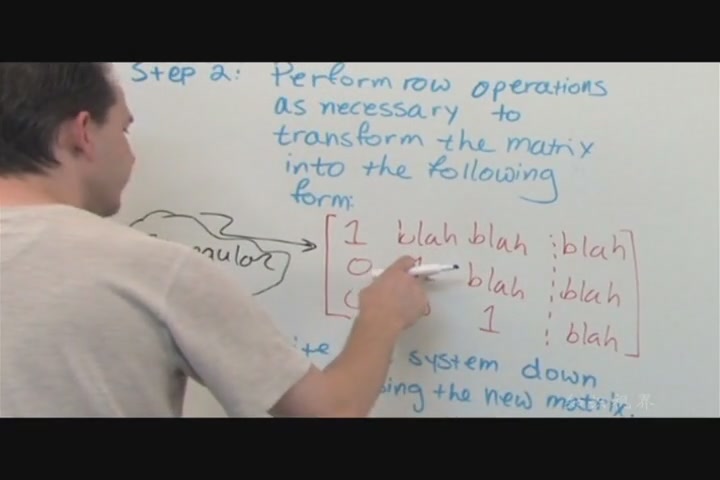 Step 2: Perform row operations
as necessary to
transform the matrix
into the following
form:
1 blah blah blah
0 blah blah
1 blah
system down
the new matrix.